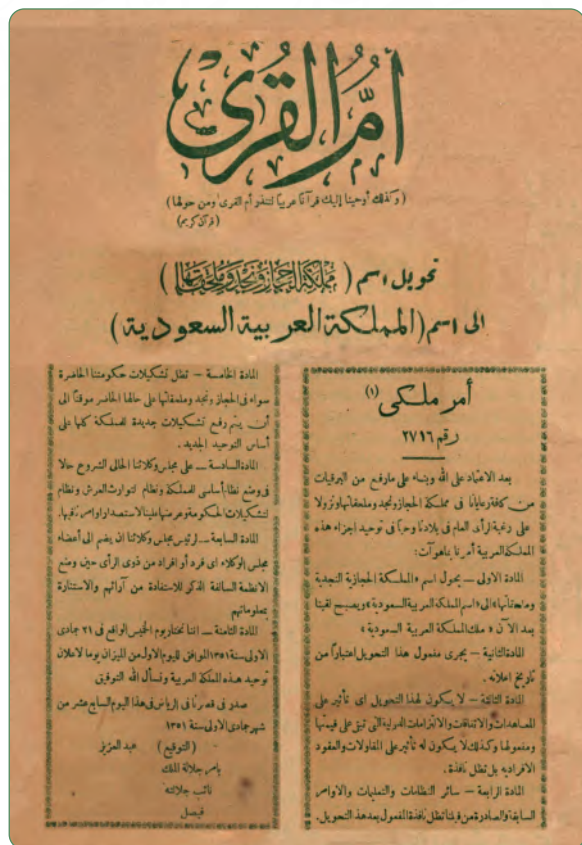 أم القرى
( وكذلك أوحينا إليك قرآنا عربيا لتنذر أم القرى ومن حولها )
(قرآن كريم)
تحويل اسم ( مملكة الحجاز ونجد وملحقاتها )
الى اسم (المملكة العربية السعودية )
أمر ملكى (١)
رقم ٢٧١٦
بعد الاعتماد على الله وبناء على مارفع من البرقيات
من كافة رعايانا فى مملكة الحجاز ونجد وملحقاتها ونزولا
على رغبة الرأى العام فى بلادنا وحبا فى توحيد اجزاء هذه
المملكة العربية أمرنا بما هو آت :
المادة الاولى – يحول اسم « المملكة الحجازية النجدية
وملحقاتها » الى « اسم المملكة العربية السعودية » ويصبح لقبنا
بعد الآن « ملك المملكة العربية السعودية »
المادة الثانية – يجرى مفعول هذا التحويل اعتبارا من
تاريخ اعلانه .
المادة الثالثة – لا يكون لهذا التحويل اى تأثير على
المعاهدات والاتفاقات والالتزامات الدولية التى تبقى على قيمتها
ومفعولها وكذلك لا يكون له تأثير على المقاولات والعقود
الافرادية بل تظل نافذة .
المادة الرابعة – سائر النظامات والتعليمات والاوامر
السابقة والصادرة من قبلنا تظل نافذة المفعول بعد هذا التحويل .
المادة الخامسة – تظل تشكيلات حكومتنا الحاضرة
سواء فى الحجاز ونجد وملحقاتها على حالها الحاضر موقتا الى
أن يتم وضع تشكيلات جديدة للمملكة كلها على
أساس التوحيد الجديد .
المادة السادسة – على مجلس وكلائنا الحالى الشروع حالا
فى وضع نظام أساسى للمملكة ونظام لتوارث العرش ونظام
لتشكيلات الحكومة وعرضها علينا لاستصدار اوامرنا فيها .
المادة السابعة – لرئيس مجلس وكلائنا ان يضم الى أعضاء
مجلس الوكلاء اى فرد أو افراد من ذوى الرأى حين وضع
الانظمة السالفة الذكر للاستفادة من آرائهم والاستنارة
بمعلوماتهم
المادة الثامنة – اننا نختار يوم الخميس الواقع فى ٢١ جمادى
الاولى سنة ١٣٥١ الموافق لليوم الاول من الميزان يوما لاعلان
توحيد هذه المملكة العربية ونسأل الله التوفيق
صدر فى قصرنا فى الرياض فى هذا اليوم السابع عشر من
شهر جمادى الاولى سنة ١٣٥١
( التوقيع ) عبد العزيز
بامر جلالة الملك
نائب جلالته
فيصل